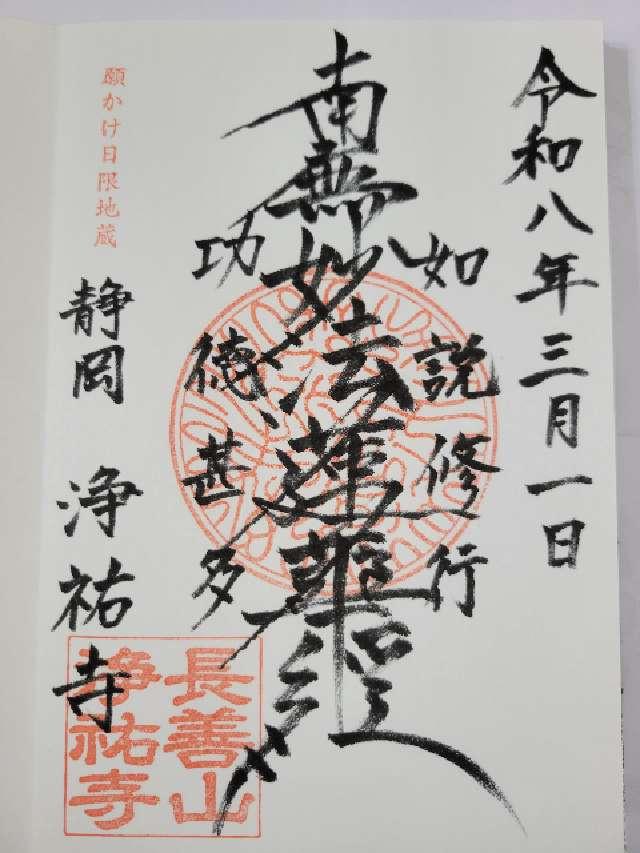 令和八年三月一日
如説修行
南無妙法蓮華経
功徳甚多
願かけ日限地蔵
静岡 浄祐寺
長善山
浄祐寺